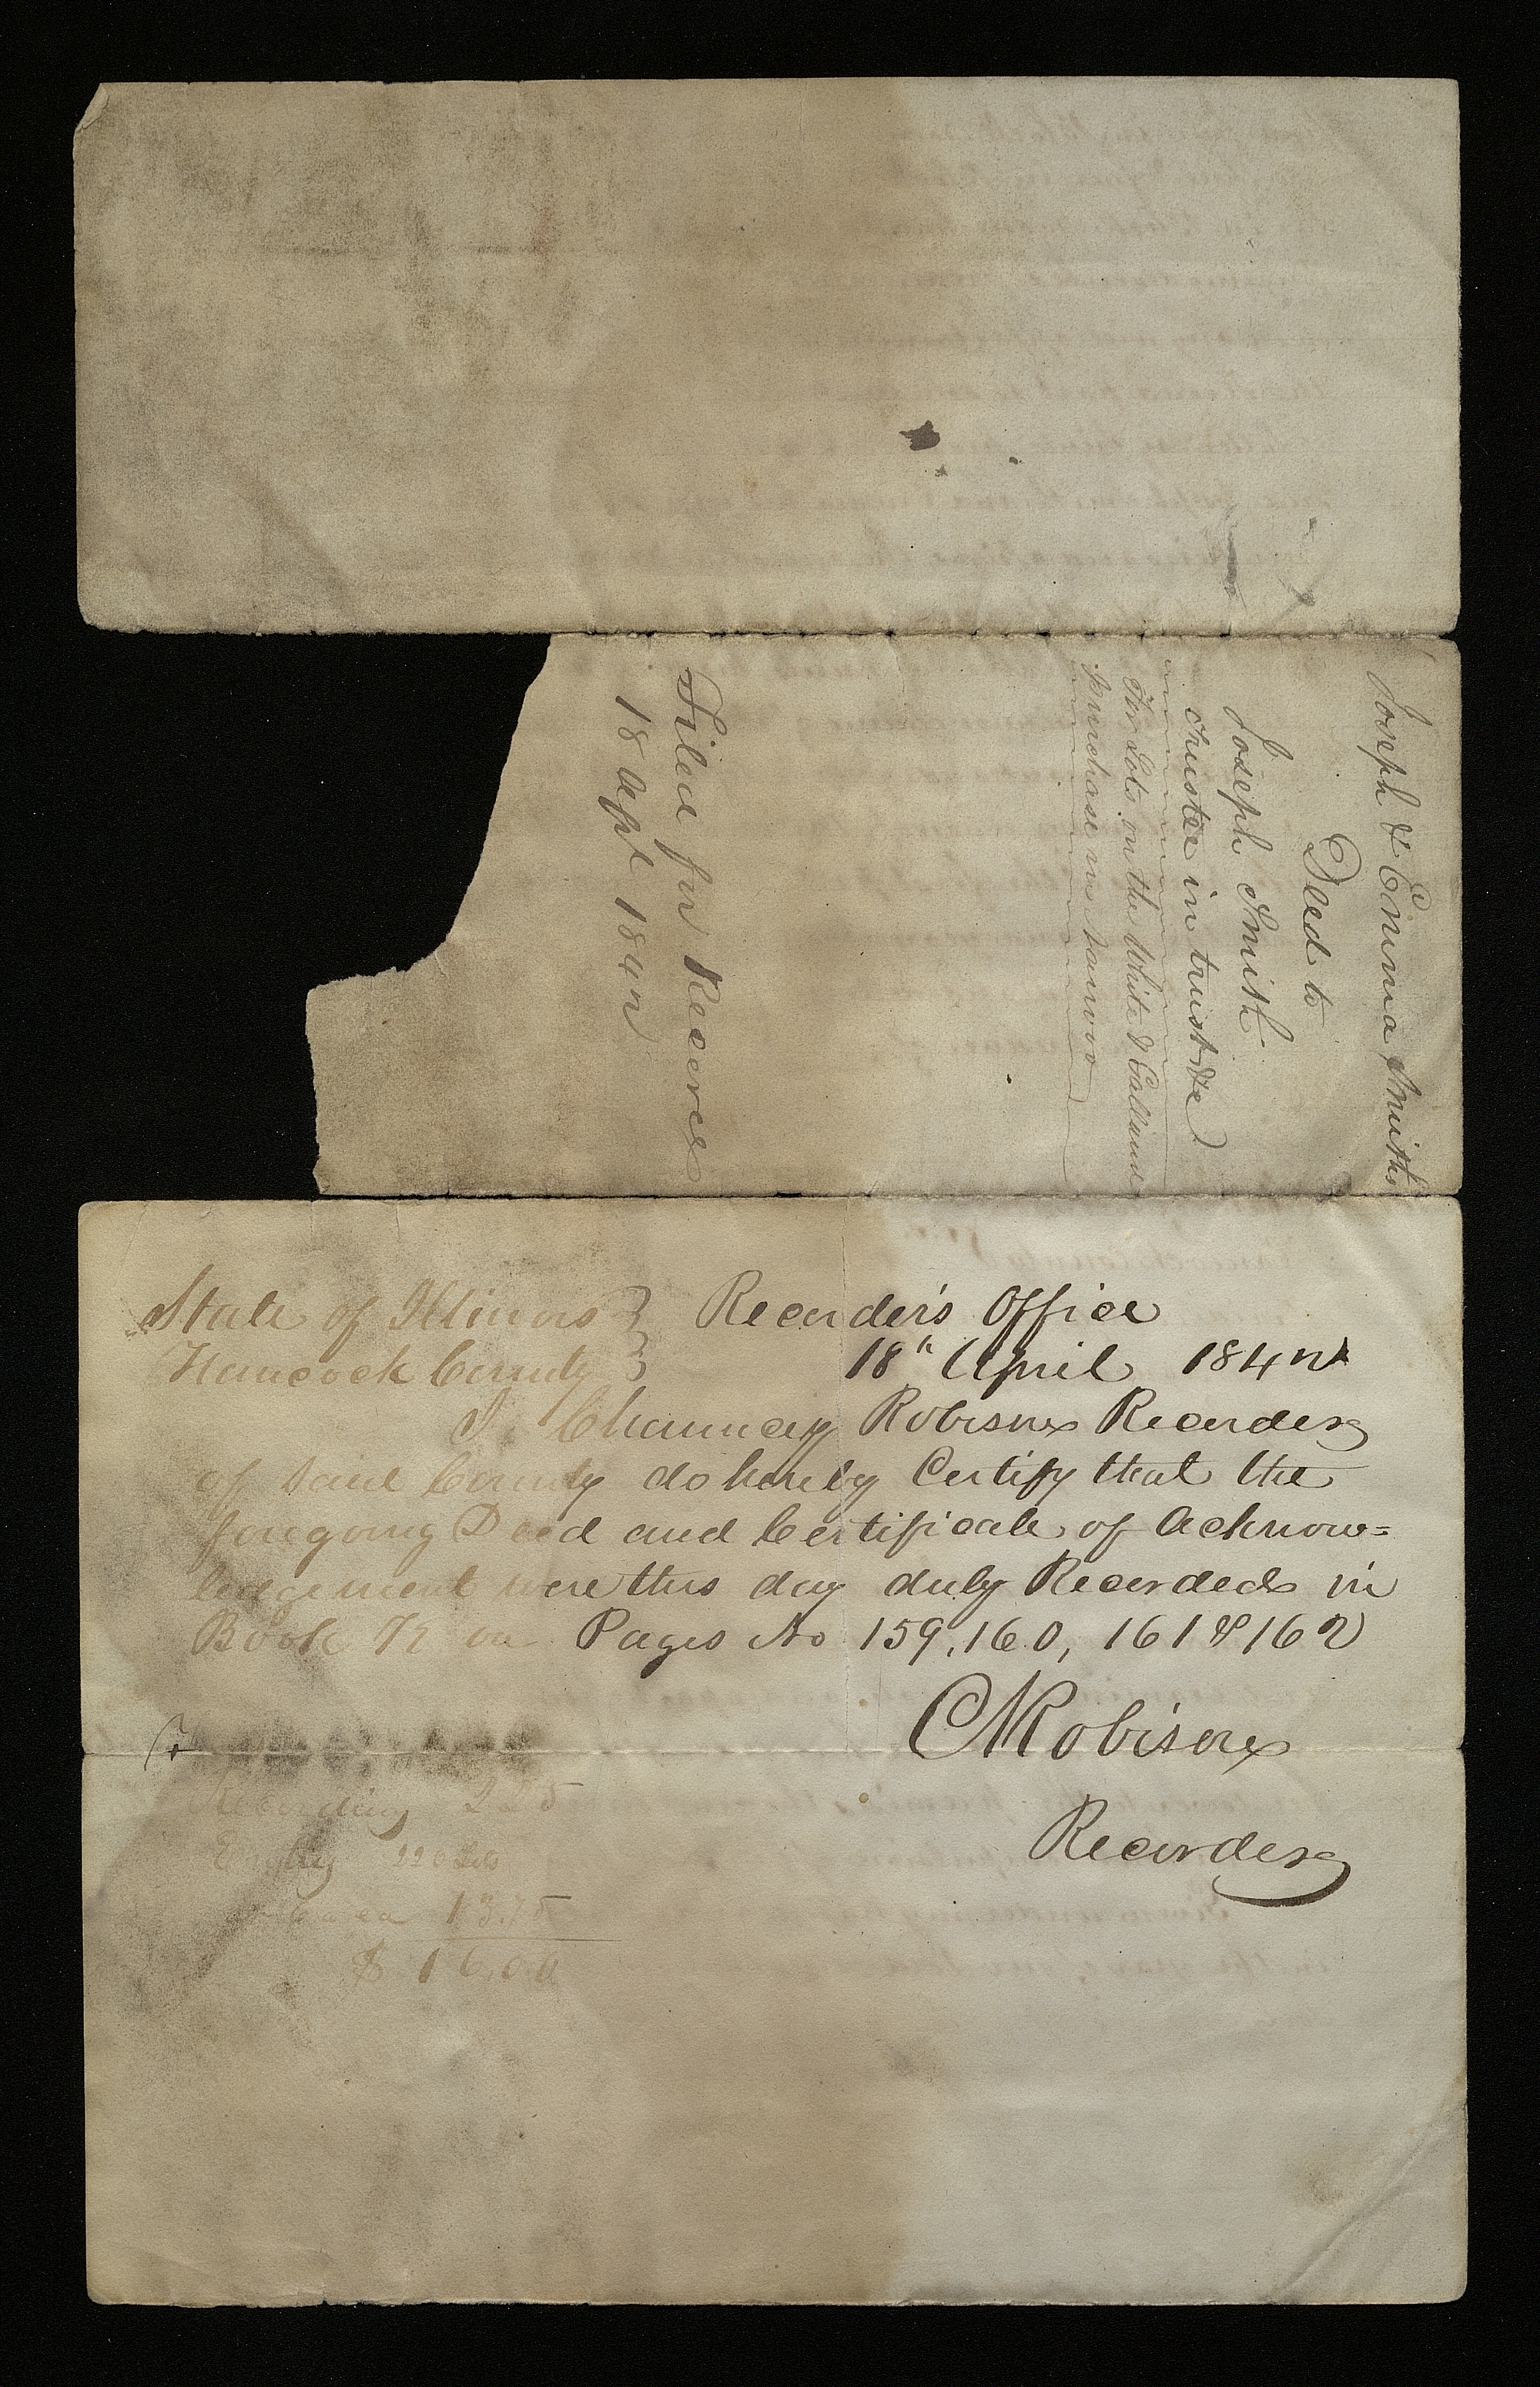 Joseph & Emma Smith
Deed to
Joseph Smith
trustee in trust &c
For Lots on the White & Galland
purchase in Nauvoo
Filed for Record
18 Apl 1842
State of Illinois } Recorders Office
Hancock County } 18th April 1842
I. Chauncey Robison Recorder
of said County do hereby Certify that the
foregoing Deed and Certificate of Acknow=
ledgement were this day duly Recorded in
Book K on Pages No 159, 160, 161 & 162
C Robison
Recorder
Recording 2 25
13.75
$ 16.00